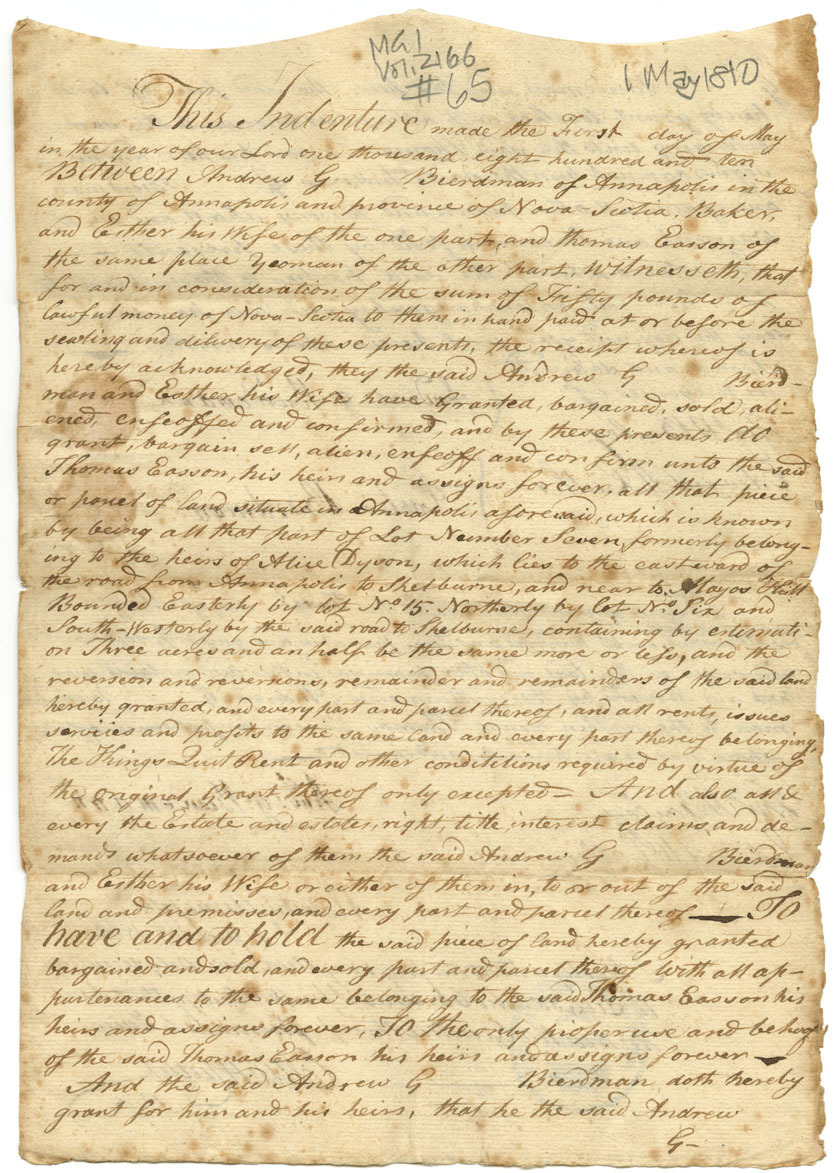 MG1
Vol. 2166
#65
1 May 1810
This Indenture made the First day of May
in the year of our Lord one thousand eight hundred and ten
Between Andrew G Bierdman of Annapolis in the
county of Annapolis and province of Nova-Scotia, Baker,
and Esther his Wife of the one part, and Thomas Easson of
the same place Yeoman of the other part, Witnesseth, that
for and in consideration of the sum of Fifty pounds of
lawful money of Nova-Scotia to them in hand paid at or before the
sealing and dilivery of these presents, the receipt whereof is
hereby acknowledged, they the said Andrew G Bierd-
man and Esther his Wife have Granted, bargained, sold, ali-
ened, enfeoffed and confirmed, and by these presents do
grant, bargain sell, alien, enfeoff and confirm unto the said
Thomas Easson, his heirs and assigns forever, all that piece
or parcel of land situate in Annapolis aforesaid, which is known
by being all that part of Lot Number Seven, formerly belong-
ing to the heirs of Alice Dyson, which lies to the eastward of
the road from Annapolis to Shelburne, and near to Mayos Hill
Bounded Easterly by lot No. 15. Northerly by Lot No. Six and
South-Westerly by the said road to Shelburne, containing by estimati-
on Three acres and an half be the same more or less, and the
reversion and reversions, remainder and remainders of the said land
hereby granted, and every part and parcel thereof, and all rents, issues
services and profits to the same land and every part thereof belonging,
The Kings Quit Rent and other conditions required by virtue of
the original Grant thereof only excepted= And also all &
every the Estate and estates, right, title, interest claims and de-
mands whatsoever of them the said Andrew G Bierdman
and Esther his Wife or either of them in, to or out of the said
land and premisses, and every part and parcel thereof — To
have and to hold the said piece of land hereby granted
bargained and sold, and every part and parcel thereof with all ap-
purtenances to the same belonging to the said Thomas Easson his
heirs and assigns forever, To the only proper use and behoof
of the said Thomas Easson his heirs and assigns forever —
And the said Andrew G Bierdman doth hereby
grant for him and his heirs, that he the said Andrew
G-